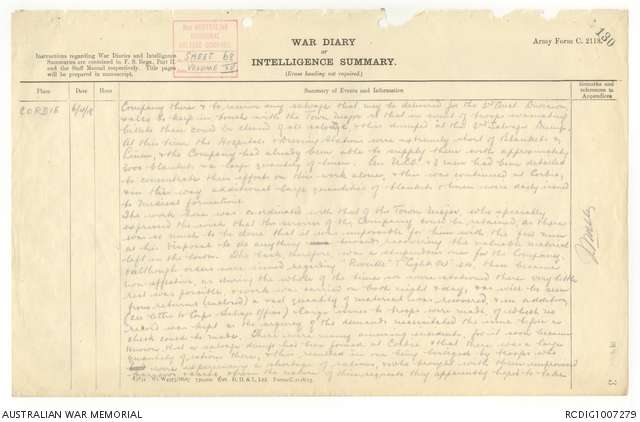 WAR DIARY
or
INTELLIGENCE SUMMARY.
(Erase heading not required.)
Army Form C. 2118.
130
Instructions regarding War Diaries and Intelligence
Summaries are contained in F. S. Regs., Part II.
and the Staff Manual respectively. Title pages
will be prepared in manuscript.
SHEET 68
VOLUME
Place
Date
Hour
Summary of Events and Information
Remarks and
references to
Appendices
CORBIE
Company there & to receive any salvage that may be delivered for the 3rd Aust. Division
also to keep in touch with the Town Major so that in event of troops evacuating
billets these could be cleared of all salvage, & this dumped at the 3rd Salvage Dump.
At this time the Hospitals & Dressing Stations were extremely short of Blankets &
Linen, & the Company had already been able to supply them with approximately
2000 blankets & a large quantity of linen. An N.C.O. & 2 men had been detailed
to concentrate their efforts on this work alone, & this was continued at Corbie,
& in this way additional large quantities of blankets & linen were daily issued
to Medical formations.
The work here was co-ordinated with that of the Town Major, who specially
expressed the wish that the services of the Company could be retained, as there
was so much to be done that it was impossible for them with the few men
at his disposal to do anything towards recovering the valuable material
left in the town. The task therefore was a stupendous one for the Company.
Although orders were issued regarding "Reveille" "Lights Out" etc. these became
non-effective, as during the whole of the time we were stationed there very little
rest was possible, & work was carried on both night & day, & as will be seen
from returns (enclosed) a vast quantity of material was recovered, & in addition
(see letter to Corps Salvage Officer) large issues to troops were made, of which no
record was kept as the urgency of the demands necessitated the issue before a
check could be made. There were many amusing incidents, for it soon became
known that a salvage dump had been formed at Corbie & that there was a large
quantity of rations there, & this resulted in one being besieged by troops who
were experiencing a shortage of rations, & who brought with them improvised
& carts, when the nature of their requests they apparently hoped to take
AUSTRALIAN WAR MEMORIAL
RCDIG1007279